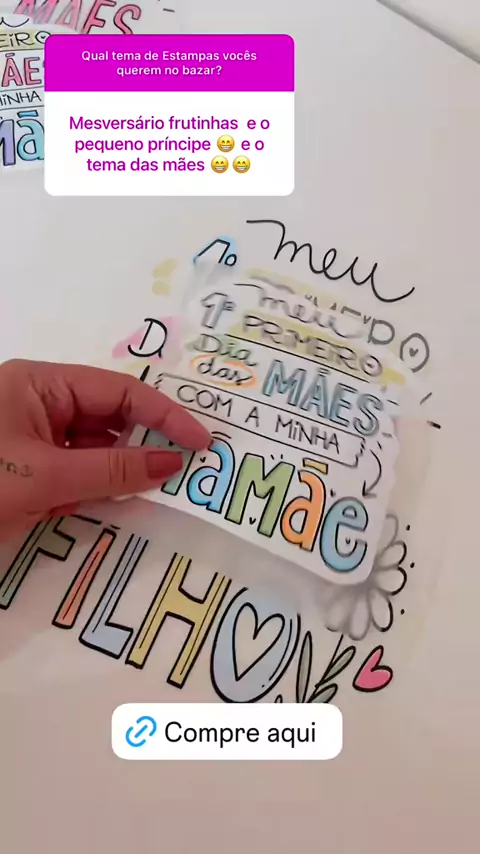 MÃES
MINHA
Qual tema de Estampas vocês
querem no bazar?
Mesversário frutinhas e o
pequeno príncipe 😁 e o
tema das mães 😁😁
meu
meu
1º PRIMEIRO
Dia
das MÃES
COM A MINHA
MAMÃE
FILHO
Compre aqui